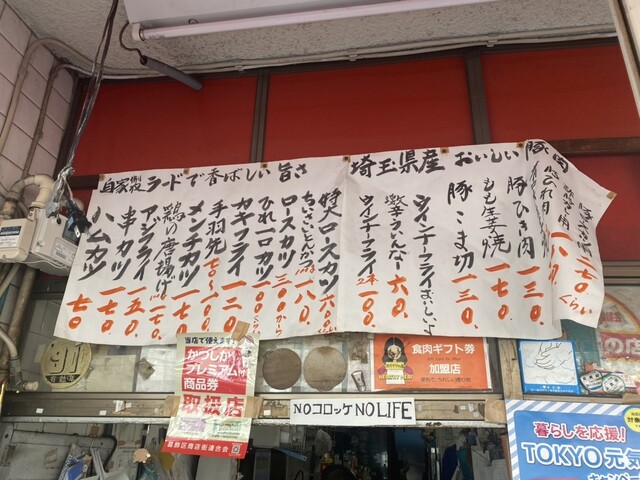 自家製ラードで香ばしい旨さ
埼玉県産 おいしい 豚肉
特大ロースカツ 六〇〇
ちいさいとんかつ 一八〇
ロースカツ 三〇〇から
ひれ一口カツ 一〇〇
カキフライ 一二〇
手羽先 七〇〜一〇〇
メンチカツ 一七〇
鶏の唐揚げ 一七〇
アジフライ 一五〇
串カツ 一七〇
ハムカツ 七〇
豚ひき肉 一三〇
もも生姜焼 一七〇
豚こま切 一三〇
ウインナーフライおいしいよ
激辛ういんなー 六〇
ウインナーフライ 2本 一〇〇
当店で使えます!
かつしか
プレミアム付
商品券
取扱店
葛飾区商店街連合会
食肉ギフト券
加盟店
NOコロッケ NO LIFE
暮らしを応援!
TOKYO元気
キャンペーン